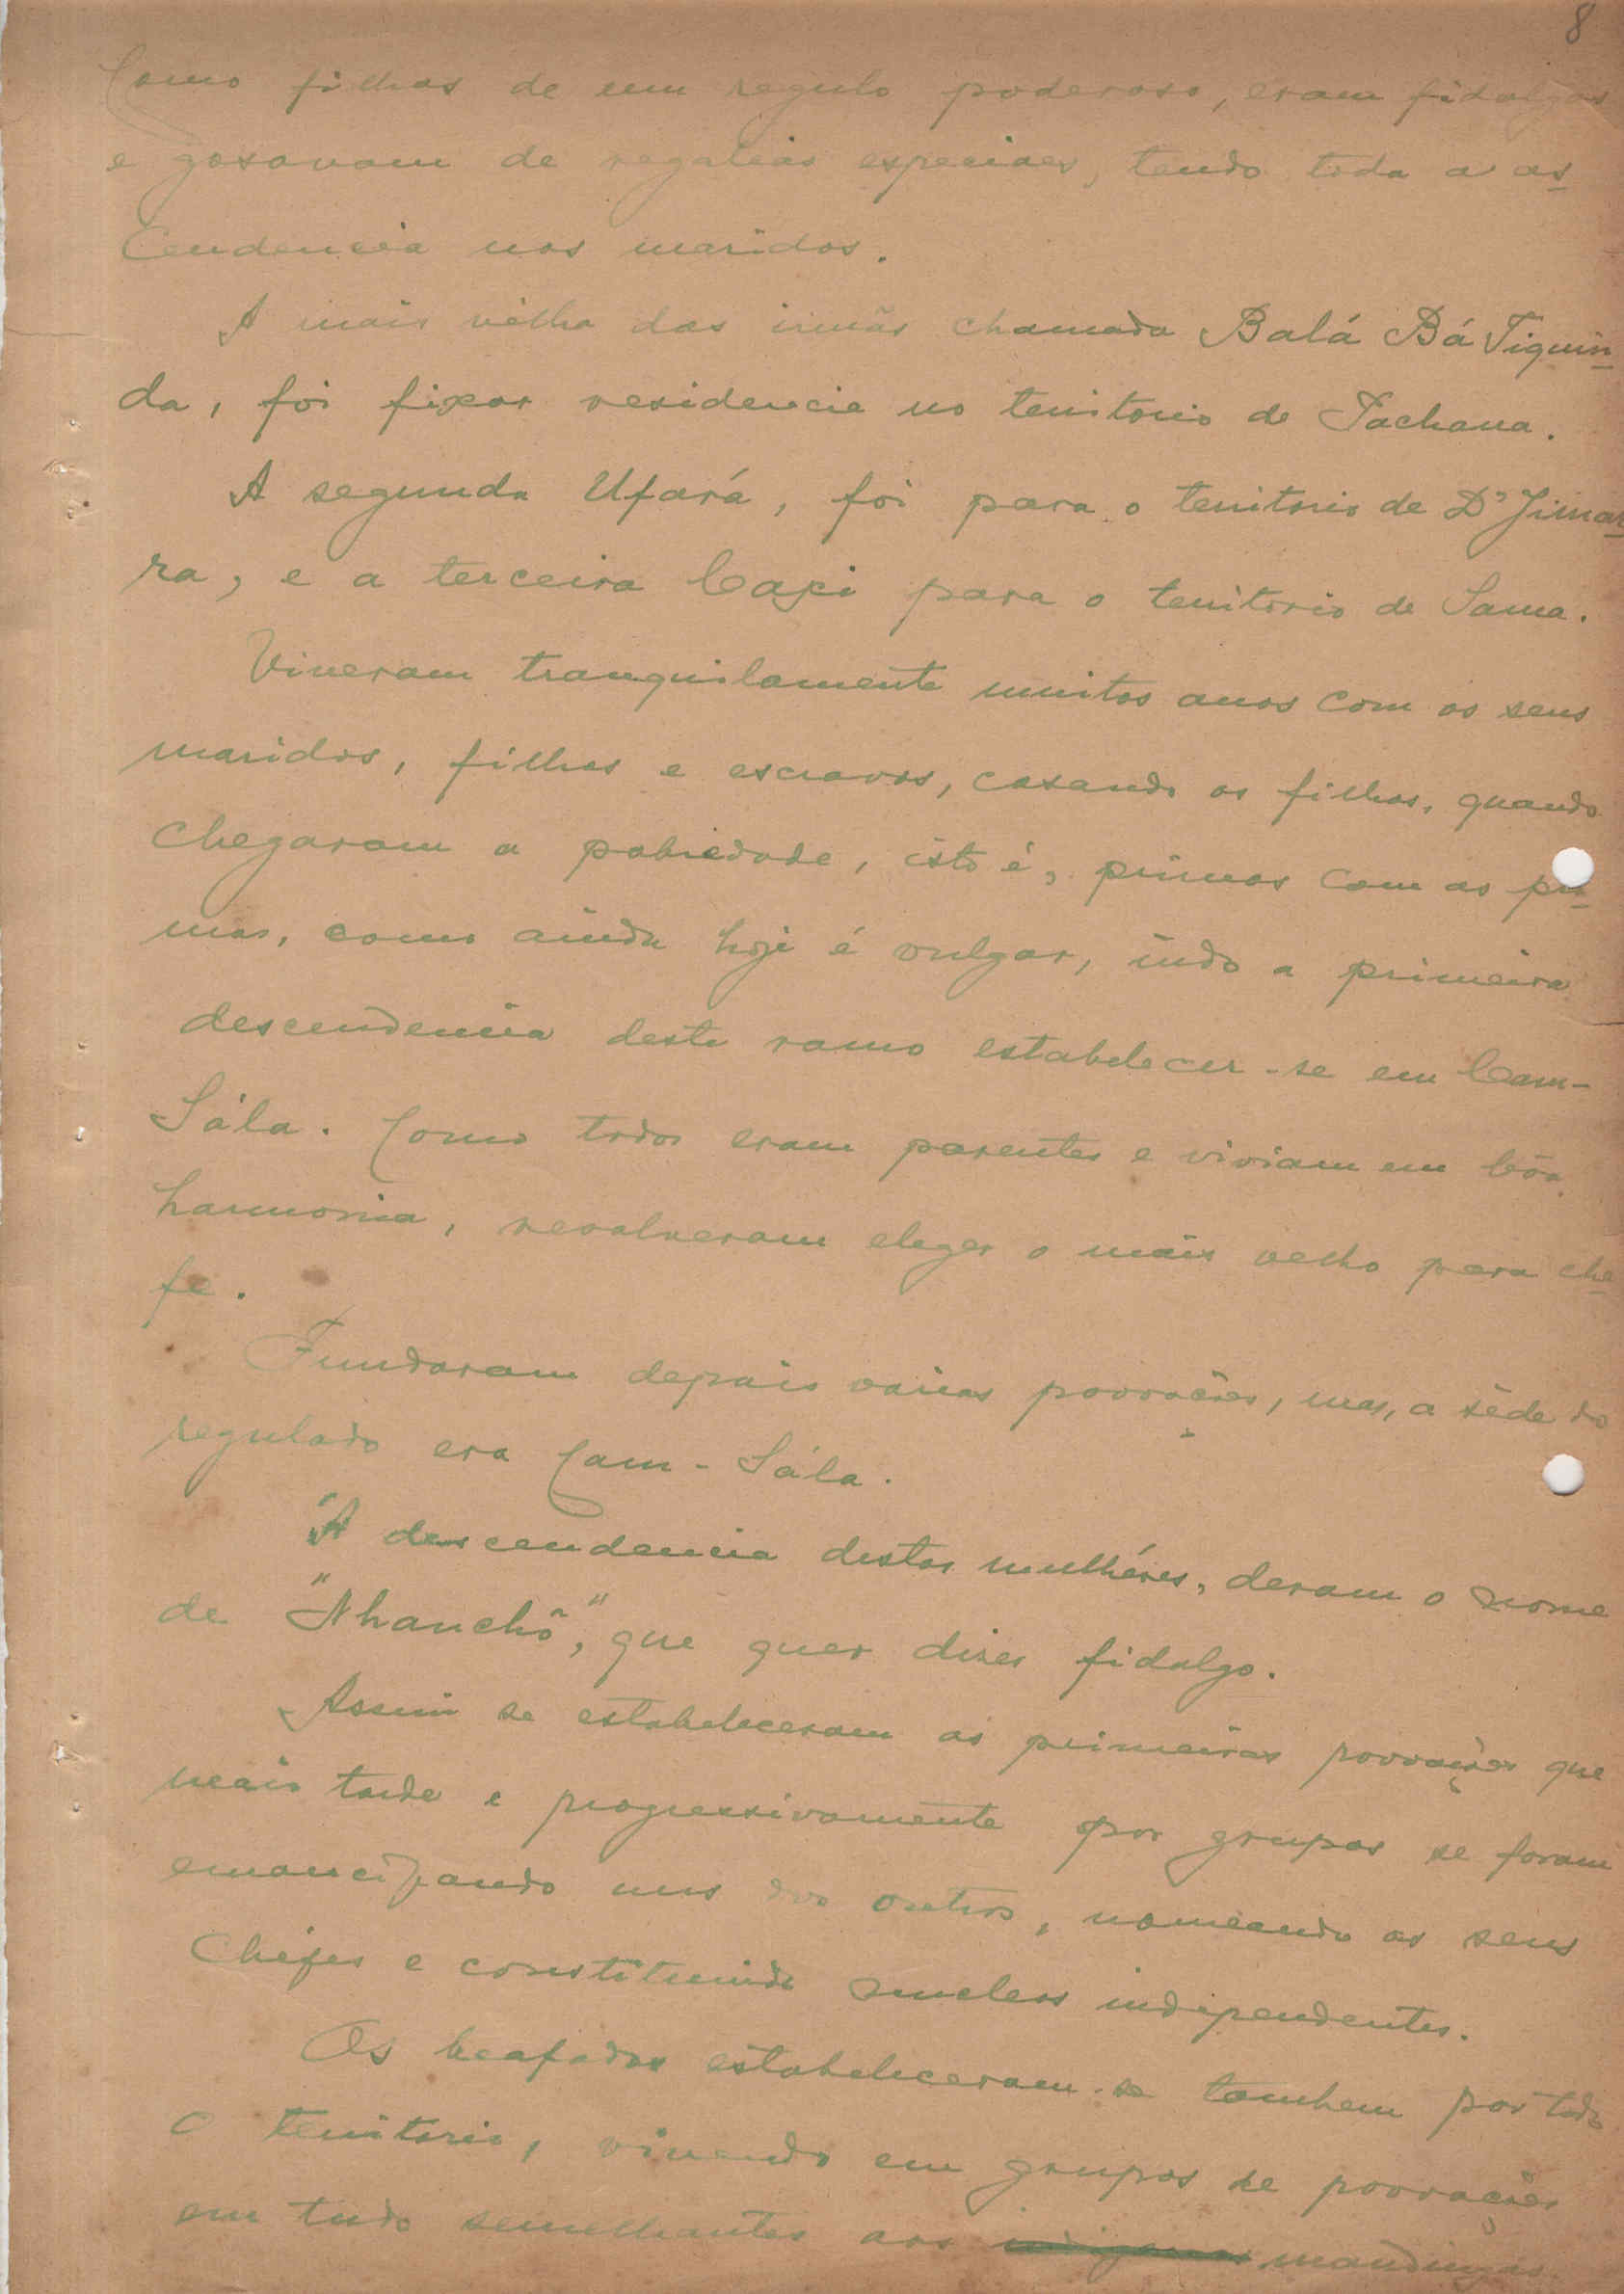 8
Como filhas de um regulo poderoso, eram fidalgas
e gosavam de regalias especiaes, tendo toda a as
cendencia nos maridos.
A mais vélha das irmãs chamada Balá Bá Tiquin
da, foi fixar residencia no territorio de Pachana.
A segunda Ufará, foi para o territorio de D'Jimar
ra, e a terceira Capi para o territorio de Sama.
Viveram tranquilamente muitos anos com os seus
maridos, filhos e escravos, casando os filhos, quando
chegaram a pobredade, isto é, primos com as pri
mas, como ainda hoje é vulgar, indo a primeira
descendencia deste ramo estabelecer-se em Cam-
Sála. Como todos eram parentes e viviam em bôa
harmonia, resolveram eleger o mais velho para che
fe.
Fundaram depois varias povoações, mas, a séde do
regulado era Cam-Sála.
Á descendencia destas mulhéres, deram o nome
de "Nhanchô", que quer dizer fidalgo.
Assim se estabeleceram as primeiras povoações que
mais tarde e progressivamente por grupos se foram
emancipando uns dos outros, nomeando os seus
chéfes e constituindo nucleos independentes.
Os beafadas estabeleceram-se tambem por todo
o territorio, vivendo em grupos de povoações
em tudo semelhantes aos indigenas mandingas.